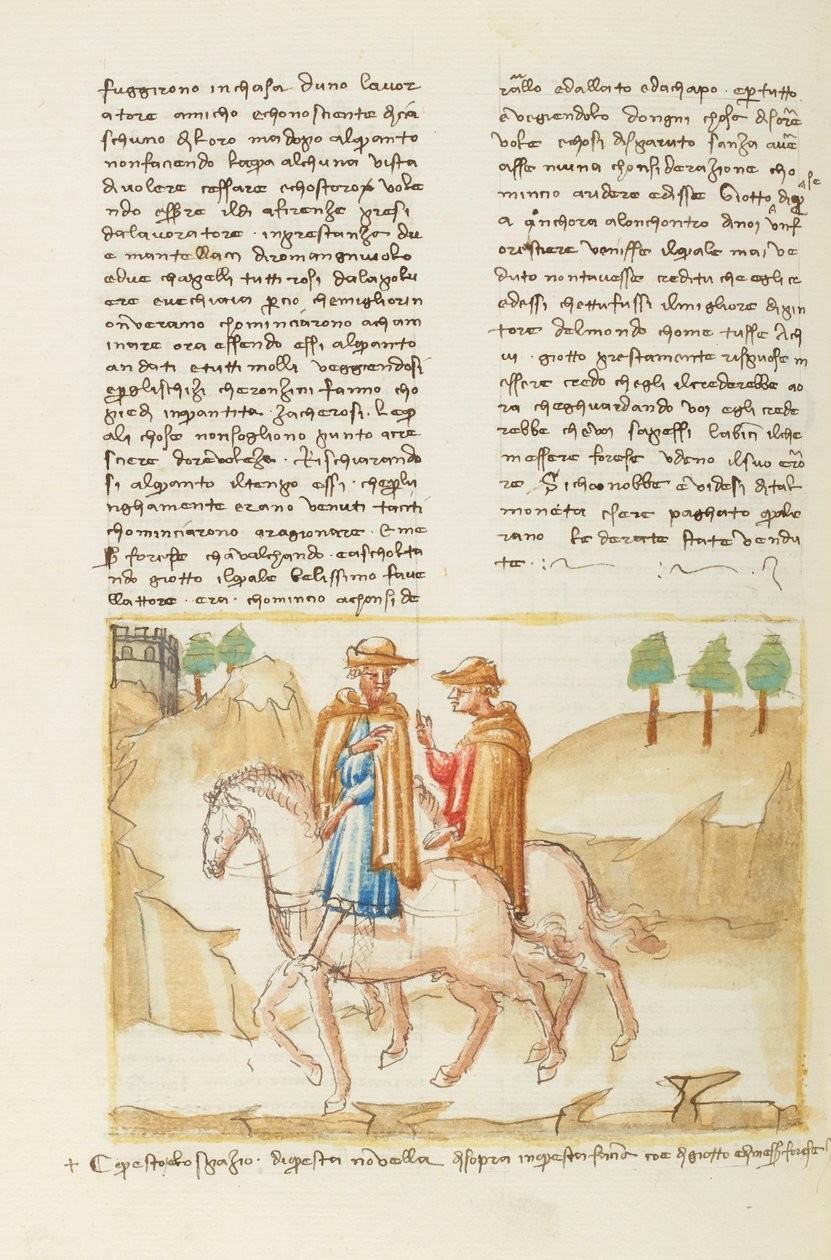 fuggirono inchasa duno lavor
atore amicho echonosciente di cia
schuno di loro ma dopo alquanto
nonfaciendo lacqua alchuna vista
di volere cessare echostoro vole
ndo essere il di afirenze presi
dalavoratore · inprestanza du
e mantellacci diromangnuolo
edue chapelli tutti rosi dalapolv
ere evechiaia percio chemigliorin
onverano chominciarono acham
inare ora essendo essi alquanto
andati etutti molli veggiendosi
epergli schizi cheronzini fanno cho
piedi inquantita · zacherosi · le qu
ali chose nonsogliono punto acre
sciere dorevoleza · Rischiarando
si alquanto iltenpo essi · cheplu
nghamente erano venuti taciti
chominciarono aragionare · Eme
ss forese chavalchando · eascholta
ndo giotto ilquale belissimo fave
llattore · era · chomincio aconsi de
rallo edallato edachapo · epertutto
evegiendolo dongni chosa disore
vole echosi disparuto sanza ave
asse niuna chonsiderazione cho
mincio aridere edisse Giotto diqu
a anchora alonchontro anoi unf
orestiere venisse ilquale mai ve
duto nontavesse creditu che egli cr
edessi chettufussi ilmigliore dipin
tore delmondo chome tusse Ach
ui · giotto prestamente rispuose m
essere credo chegli ilcrederebbe ao
ra cheghuardando voi egli crede
rebbe chevoi sapessi labici ilche
messere forese udeno ilsuo ero
re Sichonobbe evidesi dital
moneta esere paghato quale
rano le derate state vendu
te ·
+ Questo elo spazio · diquesta novella disopra inquesta facia coe di giotto emess forese